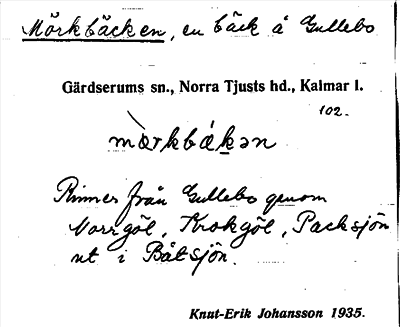 Mörkbäcken, en bäck å Gullebo
Gärdserums sn., Norra Tjusts hd., Kalmar l.
102.
mòrkbákən
Rinner från Gullebo genom
Norrgöl, Krokgöl, Packsjön
ut i Båtsjön.
Knut-Erik Johansson 1935.